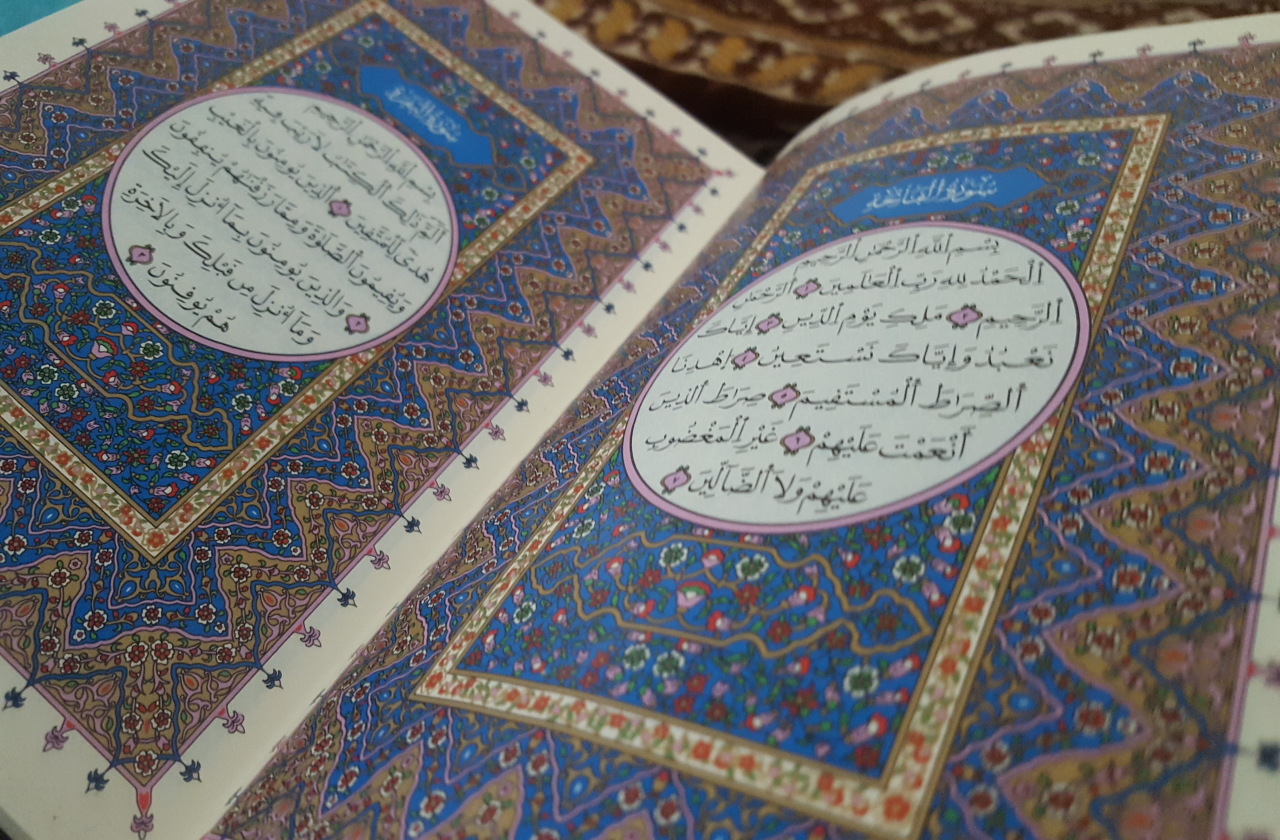 سُورَةُ الْفَاتِحَةِ
بِسْمِ اللَّهِ الرَّحْمَٰنِ الرَّحِيمِ
اَلْحَمْدُ لِلهِ رَبِّ الْعَٰلَمِينَ اَلرَّحْمَٰنِ
اِلرَّحِيمِ مَلِكِ يَوْمِ الدِّينِ إِيَّاكَ
نَعْبُدُ وَإِيَّاكَ نَسْتَعِينُ اِهْدِنَا
اَلصِّرَاطَ اَلْمُسْتَقِيمَ صِرَاطَ الذِينَ
أَنْعَمْتَ عَلَيْهِمْ غَيْرِ الْمَغْضُوبِ
عَلَيْهِمْ وَلَا اَلضَّآلِّينَ
سُورَةُ الْبَقَرَةِ
بِسْمِ اللَّهِ الرَّحْمَٰنِ الرَّحِيمِ
الٓمٓ ذَٰلِكَ الْكِتَٰبُ لَا رَيْبَ فِيهِ
هُدىً لِّلْمُتَّقِينَ اَلذِينَ يُومِنُونَ بِالْغَيْبِ
وَيُقِيمُونَ اَلصَّلَوٰةَ وَمِمَّا رَزَقْنَٰهُمْ يُنفِقُونَ
وَالذِينَ يُومِنُونَ بِمَآ أُنزِلَ إِلَيْكَ
وَمَآ أُنزِلَ مِن قَبْلِكَ وَبِالَاخِرَةِ
هُمْ يُوقِنُونَ